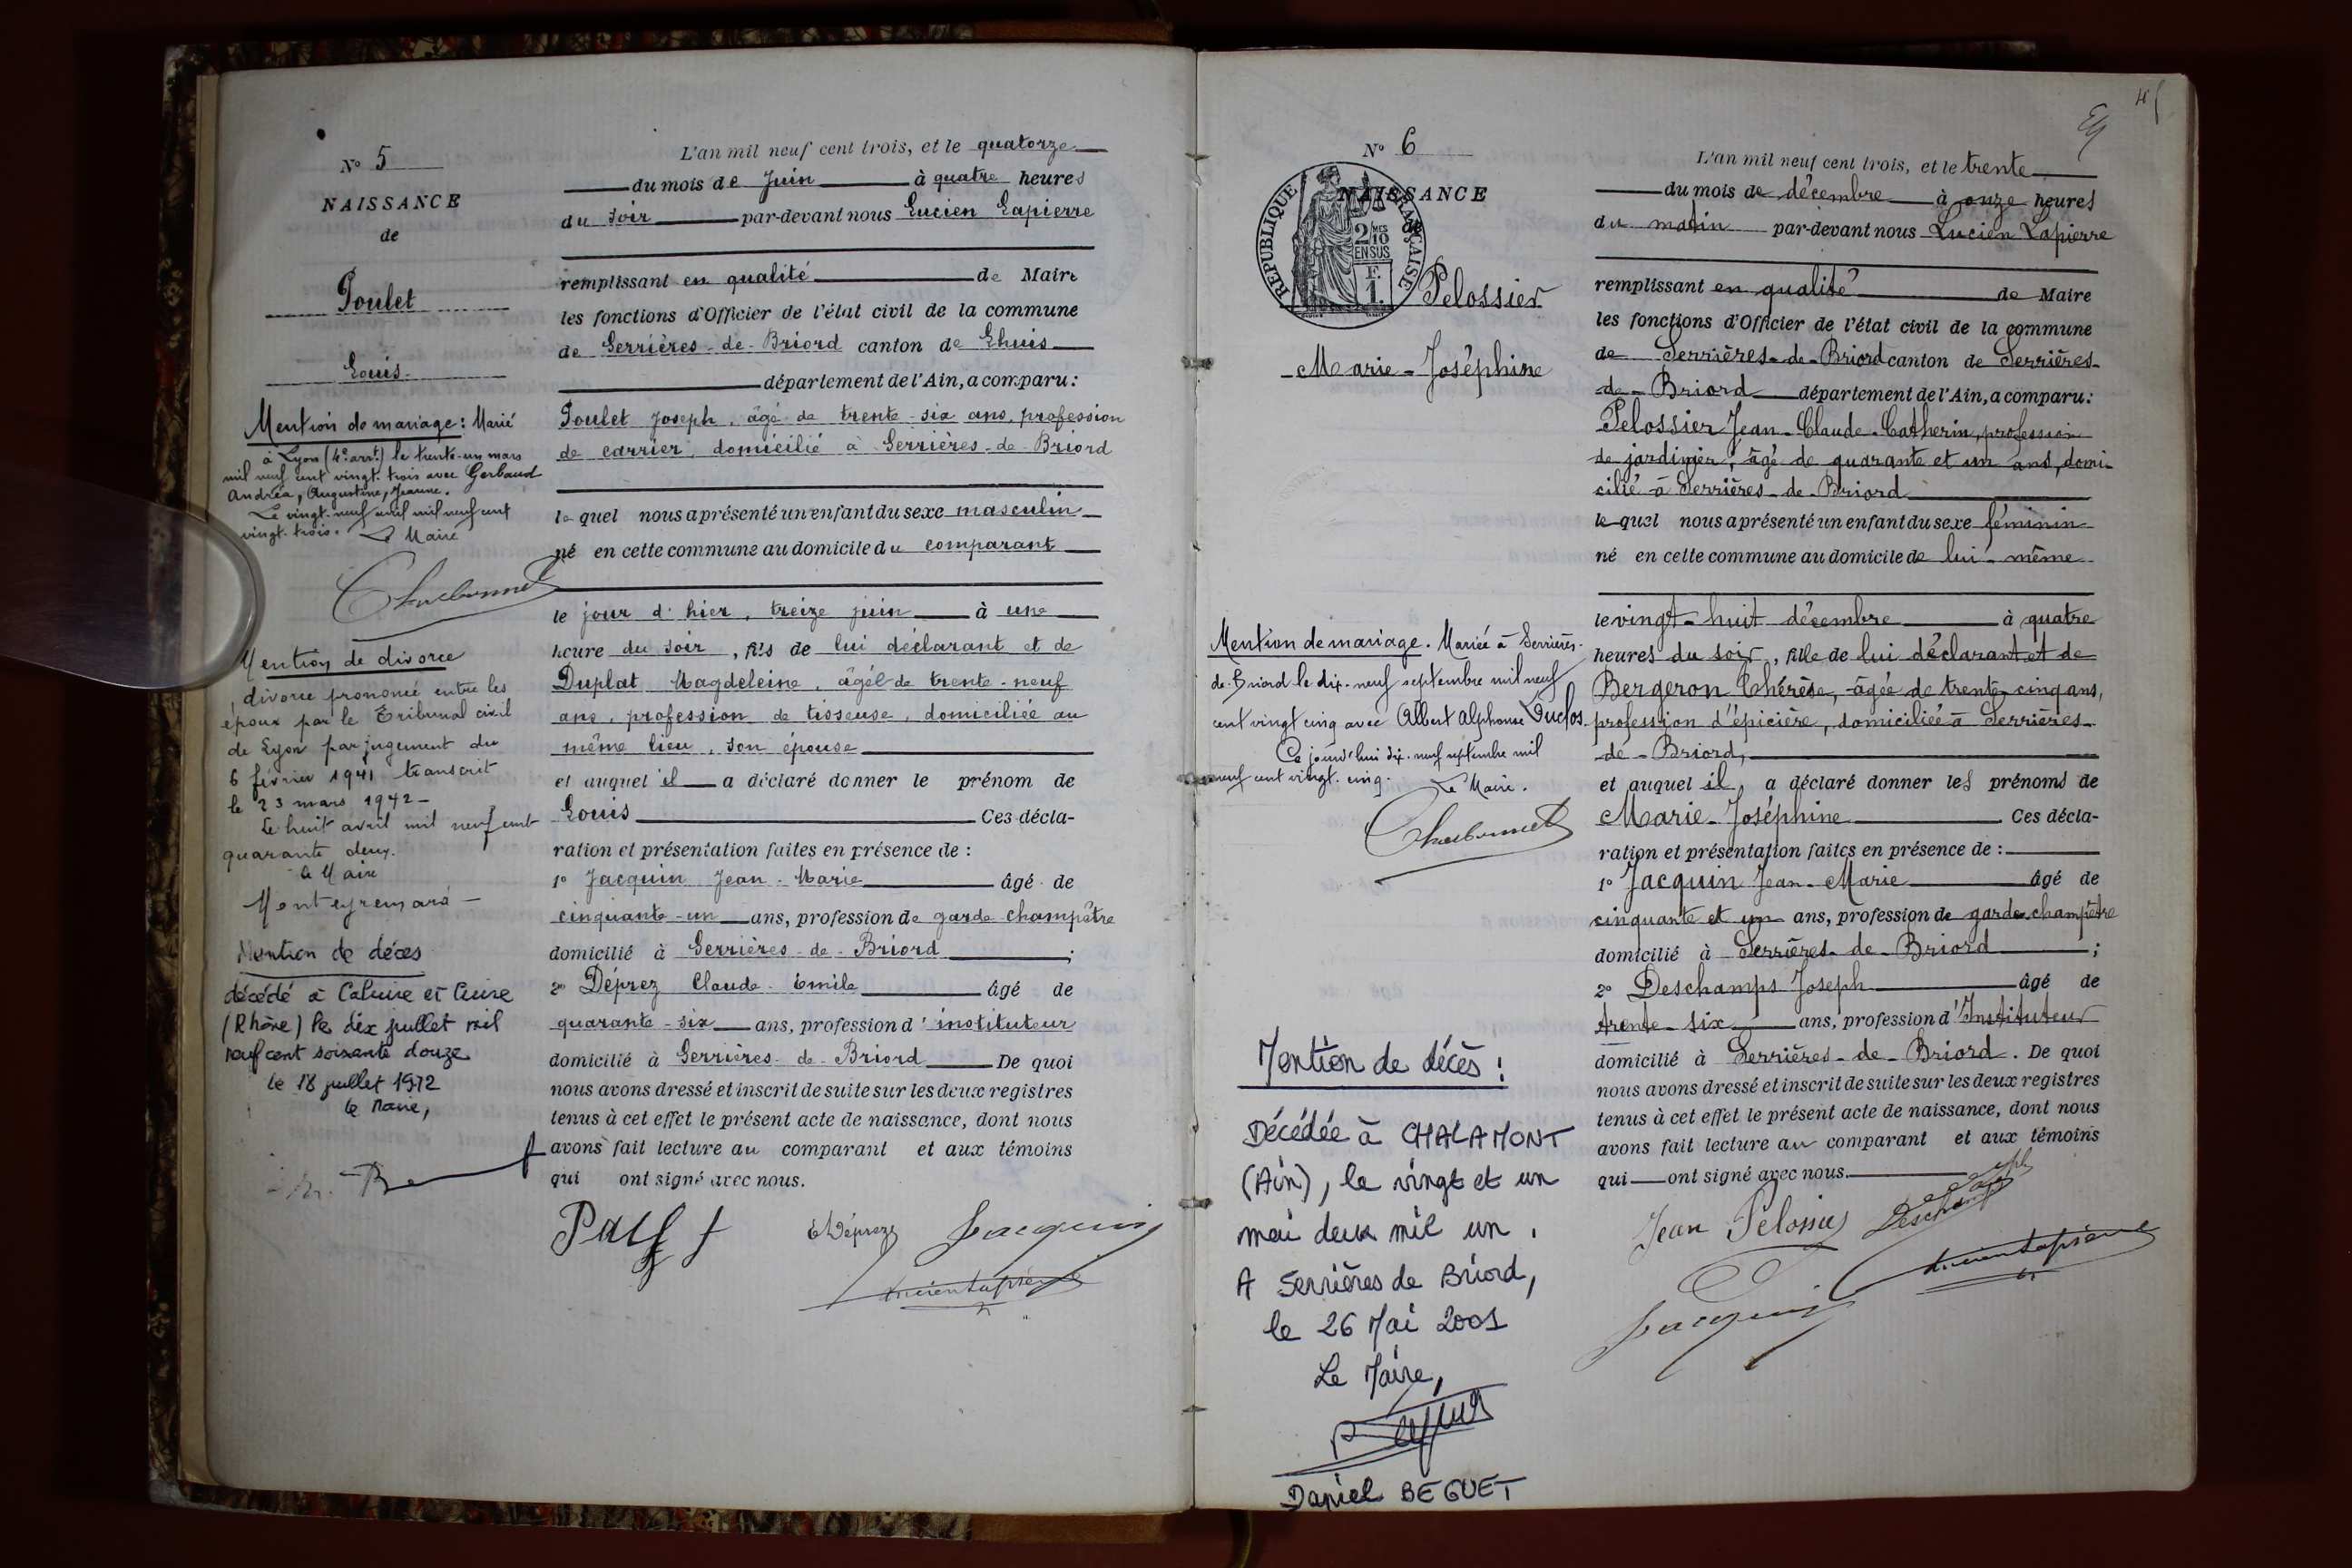 N° 5
NAISSANCE
de
Poulet
Louis
Mention de mariage : Marié
à Lyon (4e arrt) le trente-un mars
mil neuf cent vingt-trois avec Gerbaud
Andréa, Augustine, Jeanne.
Le vingt-neuf avril mil neuf cent
vingt-trois. Le Maire
Mention de divorce
divorce prononcé entre les
époux par le Tribunal civil
de Lyon par jugement du
6 février 1941 transcrit
le 23 mars 1942 -
Le huit avril mil neuf cent
quarante deux.
le Maire
Mention de décès
décédé à Caluire et Cuire
(Rhône) le dix juillet mil
neuf cent soixante douze
le 18 juillet 1972
le Maire,
L'an mil neuf cent trois, et le quatorze
du mois de Juin à quatre heures
du soir par-devant nous Lucien Lapierre
remplissant en qualité de Maire
les fonctions d'Officier de l'état civil de la commune
de Serrières-de-Briord canton de Lhuis
département de l'Ain, a comparu :
Poulet Joseph, âgé de trente-six ans, profession
de carrier, domicilié à Serrières-de-Briord
lequel nous a présenté un enfant du sexe masculin
né en cette commune au domicile du comparant
le jour d'hier, treize juin à une
heure du soir, fils de lui déclarant et de
Duplat Magdeleine, âgée de trente-neuf
ans, profession de tisseuse, domiciliée au
même lieu, son épouse
et auquel il a déclaré donner le prénom de
Louis Ces décla-
ration et présentation faites en présence de :
1° Jacquin Jean-Marie âgé de
cinquante-un ans, profession de garde-champêtre
domicilié à Serrières-de-Briord ;
2° Déprez Claude-Emile âgé de
quarante-six ans, profession d'instituteur
domicilié à Serrières-de-Briord De quoi
nous avons dressé et inscrit de suite sur les deux registres
tenus à cet effet le présent acte de naissance, dont nous
avons fait lecture au comparant et aux témoins
qui ont signé avec nous.
EDéprez Jacquin
Lucien Lapierre
N° 6
NAISSANCE
de
REPUBLIQUE FRANÇAISE
2/10 MES
EN SUS
F.
1.
Pelossier
Marie-Joséphine
Mention de mariage. Mariée à Serrières-
de-Briord le dix-neuf septembre mil neuf
cent vingt cinq avec Albert Alphonse Duclos.
Ce jourd'hui dix-neuf septembre mil
neuf cent vingt-cinq. Le Maire.
Mention de décès :
Décédée à CHALAMONT
(Ain), le vingt et un
mai deux mil un.
A Serrières de Briord,
le 26 Mai 2001
Le Maire,
Daniel BEGUET
L'an mil neuf cent trois, et le trente
du mois de décembre à onze heures
du matin par-devant nous Lucien Lapierre
remplissant en qualité de Maire
les fonctions d'Officier de l'état civil de la commune
de Serrières-de-Briord canton de Serrières-
de-Briord département de l'Ain, a comparu :
Pelossier Jean-Claude-Catherin, profession
de jardinier, âgé de quarante et un ans, domi-
cilié à Serrières-de-Briord
lequel nous a présenté un enfant du sexe féminin
né en cette commune au domicile de lui-même
le vingt-huit décembre à quatre
heures du soir, fille de lui déclarant et de
Bergeron Thérèse, âgée de trente-cinq ans,
profession d'épicière, domiciliée à Serrières-
de-Briord,
et auquel il a déclaré donner les prénoms de
Marie-Joséphine Ces décla-
ration et présentation faites en présence de :
1° Jacquin Jean-Marie âgé de
cinquante et un ans, profession de garde-champêtre
domicilié à Serrières-de-Briord ;
2° Deschamps Joseph âgé de
trente-six ans, profession d'Instituteur
domicilié à Serrières-de-Briord. De quoi
nous avons dressé et inscrit de suite sur les deux registres
tenus à cet effet le présent acte de naissance, dont nous
avons fait lecture au comparant et aux témoins
qui ont signé avec nous.
Jean Pelossier Deschamps
Lucien Lapierre
Jacquin